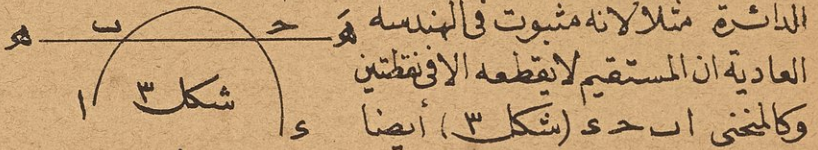 الدائرة مثلا لانه مثبوت فى الهندسه
العادية ان المستقيم لا يقطعه الا فى نقطتين
وكالمنحنى ا ب ح ء (شكل ٣) أيضا
هَ ح ب ه
شكل ٣
ا ء